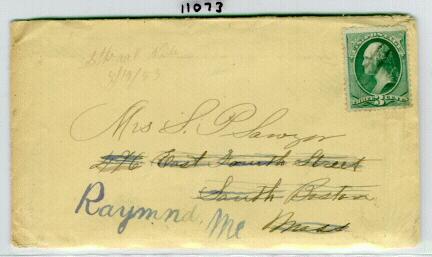 11073
8/19/83
Mrs S. P. Sawyer
East Fourth Street
South Boston
Mass
Raymnd, Me
THREE CENTS